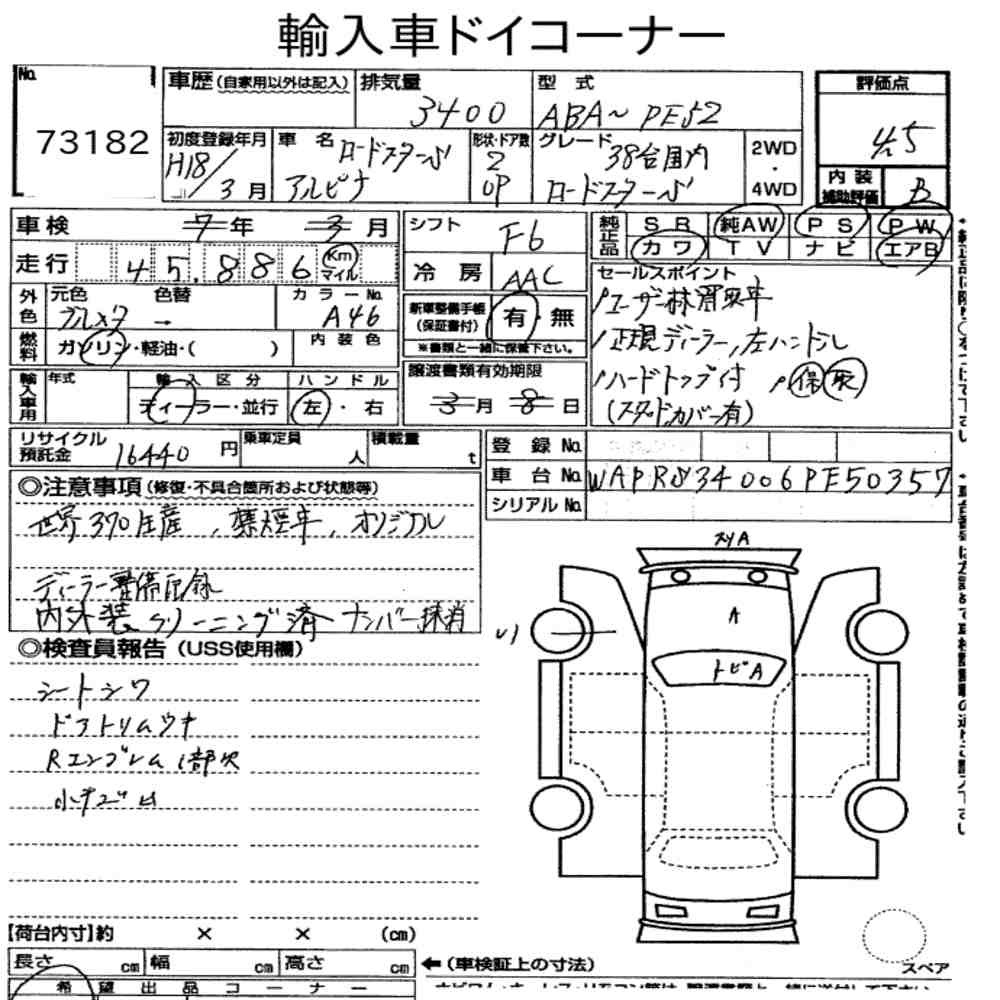 輸入車ドイコーナー
No.
73182
車歴 (自家用以外は記入)
排気量
3400
型式
ABA~PE52
評価点
4.5
初度登録年月
H18/3月
車名
ロードスターS
アルピナ
形状・ドア数
2
OP
グレード
38台国内
ロードスターS
2WD
・
4WD
内装
補助評価
B
車検 7年 3月
シフト
F6
純正品
SR 純AW PS PW
カワ TV ナビ エアB
走行 45,886 Km マイル
冷房 AAC
外色
元色
色替
カラーNo.
ブルメタ →
A46
新車整備手帳
(保証書付)
有・無
※書類と一緒に保管下さい。
セールスポイント
ユーザー抹消車
正規ディーラー,左ハンドル
ハードトップ付
保 取
燃料
ガソリン・軽油・( )
内装色
譲渡書類有効期限
3月 8日
輸入車用
年式
輸入区分
ハンドル
ディーラー・並行
左・右
リサイクル
預託金
16440円
乗車定員
人
積載量
t
登録No.
車台No. WAPR834006PE50357
シリアルNo.
◎注意事項 (修復・不具合箇所および状態等)
世界370生産,禁煙車,オリジナル
ディーラー整備記録
内外装クリーニング済 ナンバー抹消
◎検査員報告 (USS使用欄)
シートシワ
Rエンブレム1部欠
小キズ
スリA
A
トビA
【荷台内寸】約 × × (cm)
長さ cm 幅 cm 高さ cm
←(車検証上の寸法)
スペア
希望出品コーナー